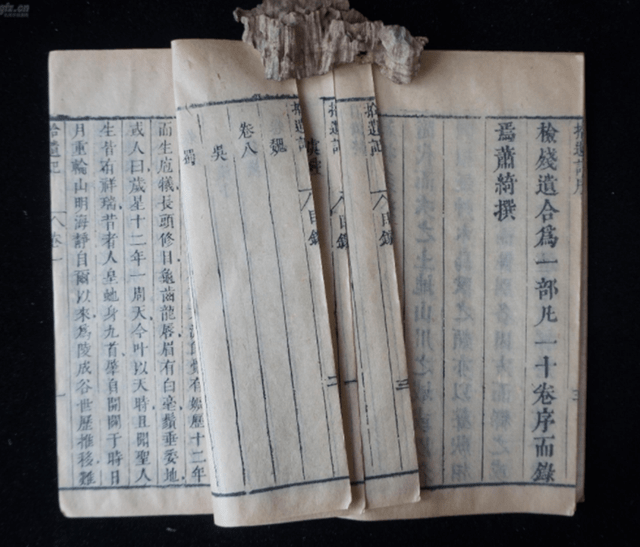 拾遺記序
檢殘遺合爲一部凡一十卷序而錄
焉蕭綺撰
拾遺記
目錄
三
拾遺記
目錄
二
魏
卷八
吳
蜀
有娠歷十二年
而生庖犧長頭修目龜齒龍唇眉有白毫鬚垂委地
或人曰歲星十二年一周天今叶以天時且聞聖人
生皆有祥瑞昔者人皇蛇身九首肇自開闢于時日
月重輪山明海靜自爾以來爲陵成谷世歷推移難
拾遺記
卷一